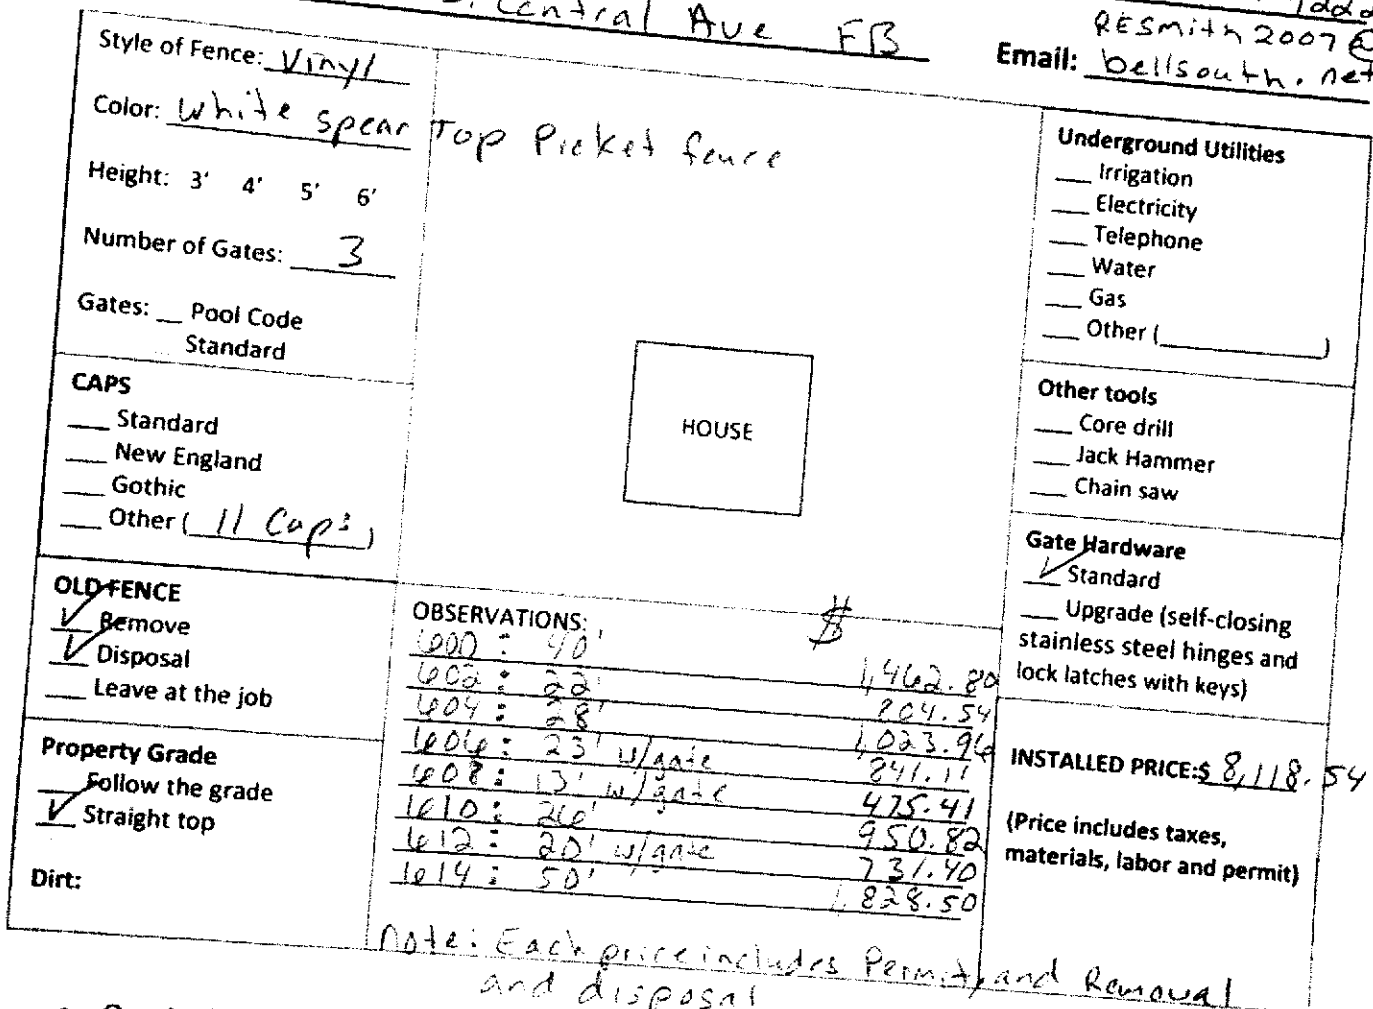 Central Ave FB
RESmith2007@
Email: bellsouth.net
Style of Fence: Vinyl
Color: White Spear Top Picket fence
Height: 3' 4' 5' 6'
Number of Gates: 3
Gates: __ Pool Code
Standard
CAPS
___ Standard
___ New England
___ Gothic
___ Other ( 11 Caps )
OLD FENCE
✓ Remove
✓ Disposal
___ Leave at the job
Property Grade
___ Follow the grade
✓ Straight top
Dirt:
HOUSE
OBSERVATIONS: $
600: 40' 1,462.80
602: 22' 804.54
604: 28' 1,023.96
606: 23' w/gate 841.11
608: 13' w/gate 475.41
610: 26' 950.82
612: 20' w/gate 731.40
614: 50' 1,828.50
Note: Each price includes Permit, and Removal
and disposal
Underground Utilities
___ Irrigation
___ Electricity
___ Telephone
___ Water
___ Gas
___ Other (____________)
Other tools
___ Core drill
___ Jack Hammer
___ Chain saw
Gate Hardware
✓ Standard
___ Upgrade (self-closing
stainless steel hinges and
lock latches with keys)
INSTALLED PRICE:$ 8,118.54
(Price includes taxes,
materials, labor and permit)